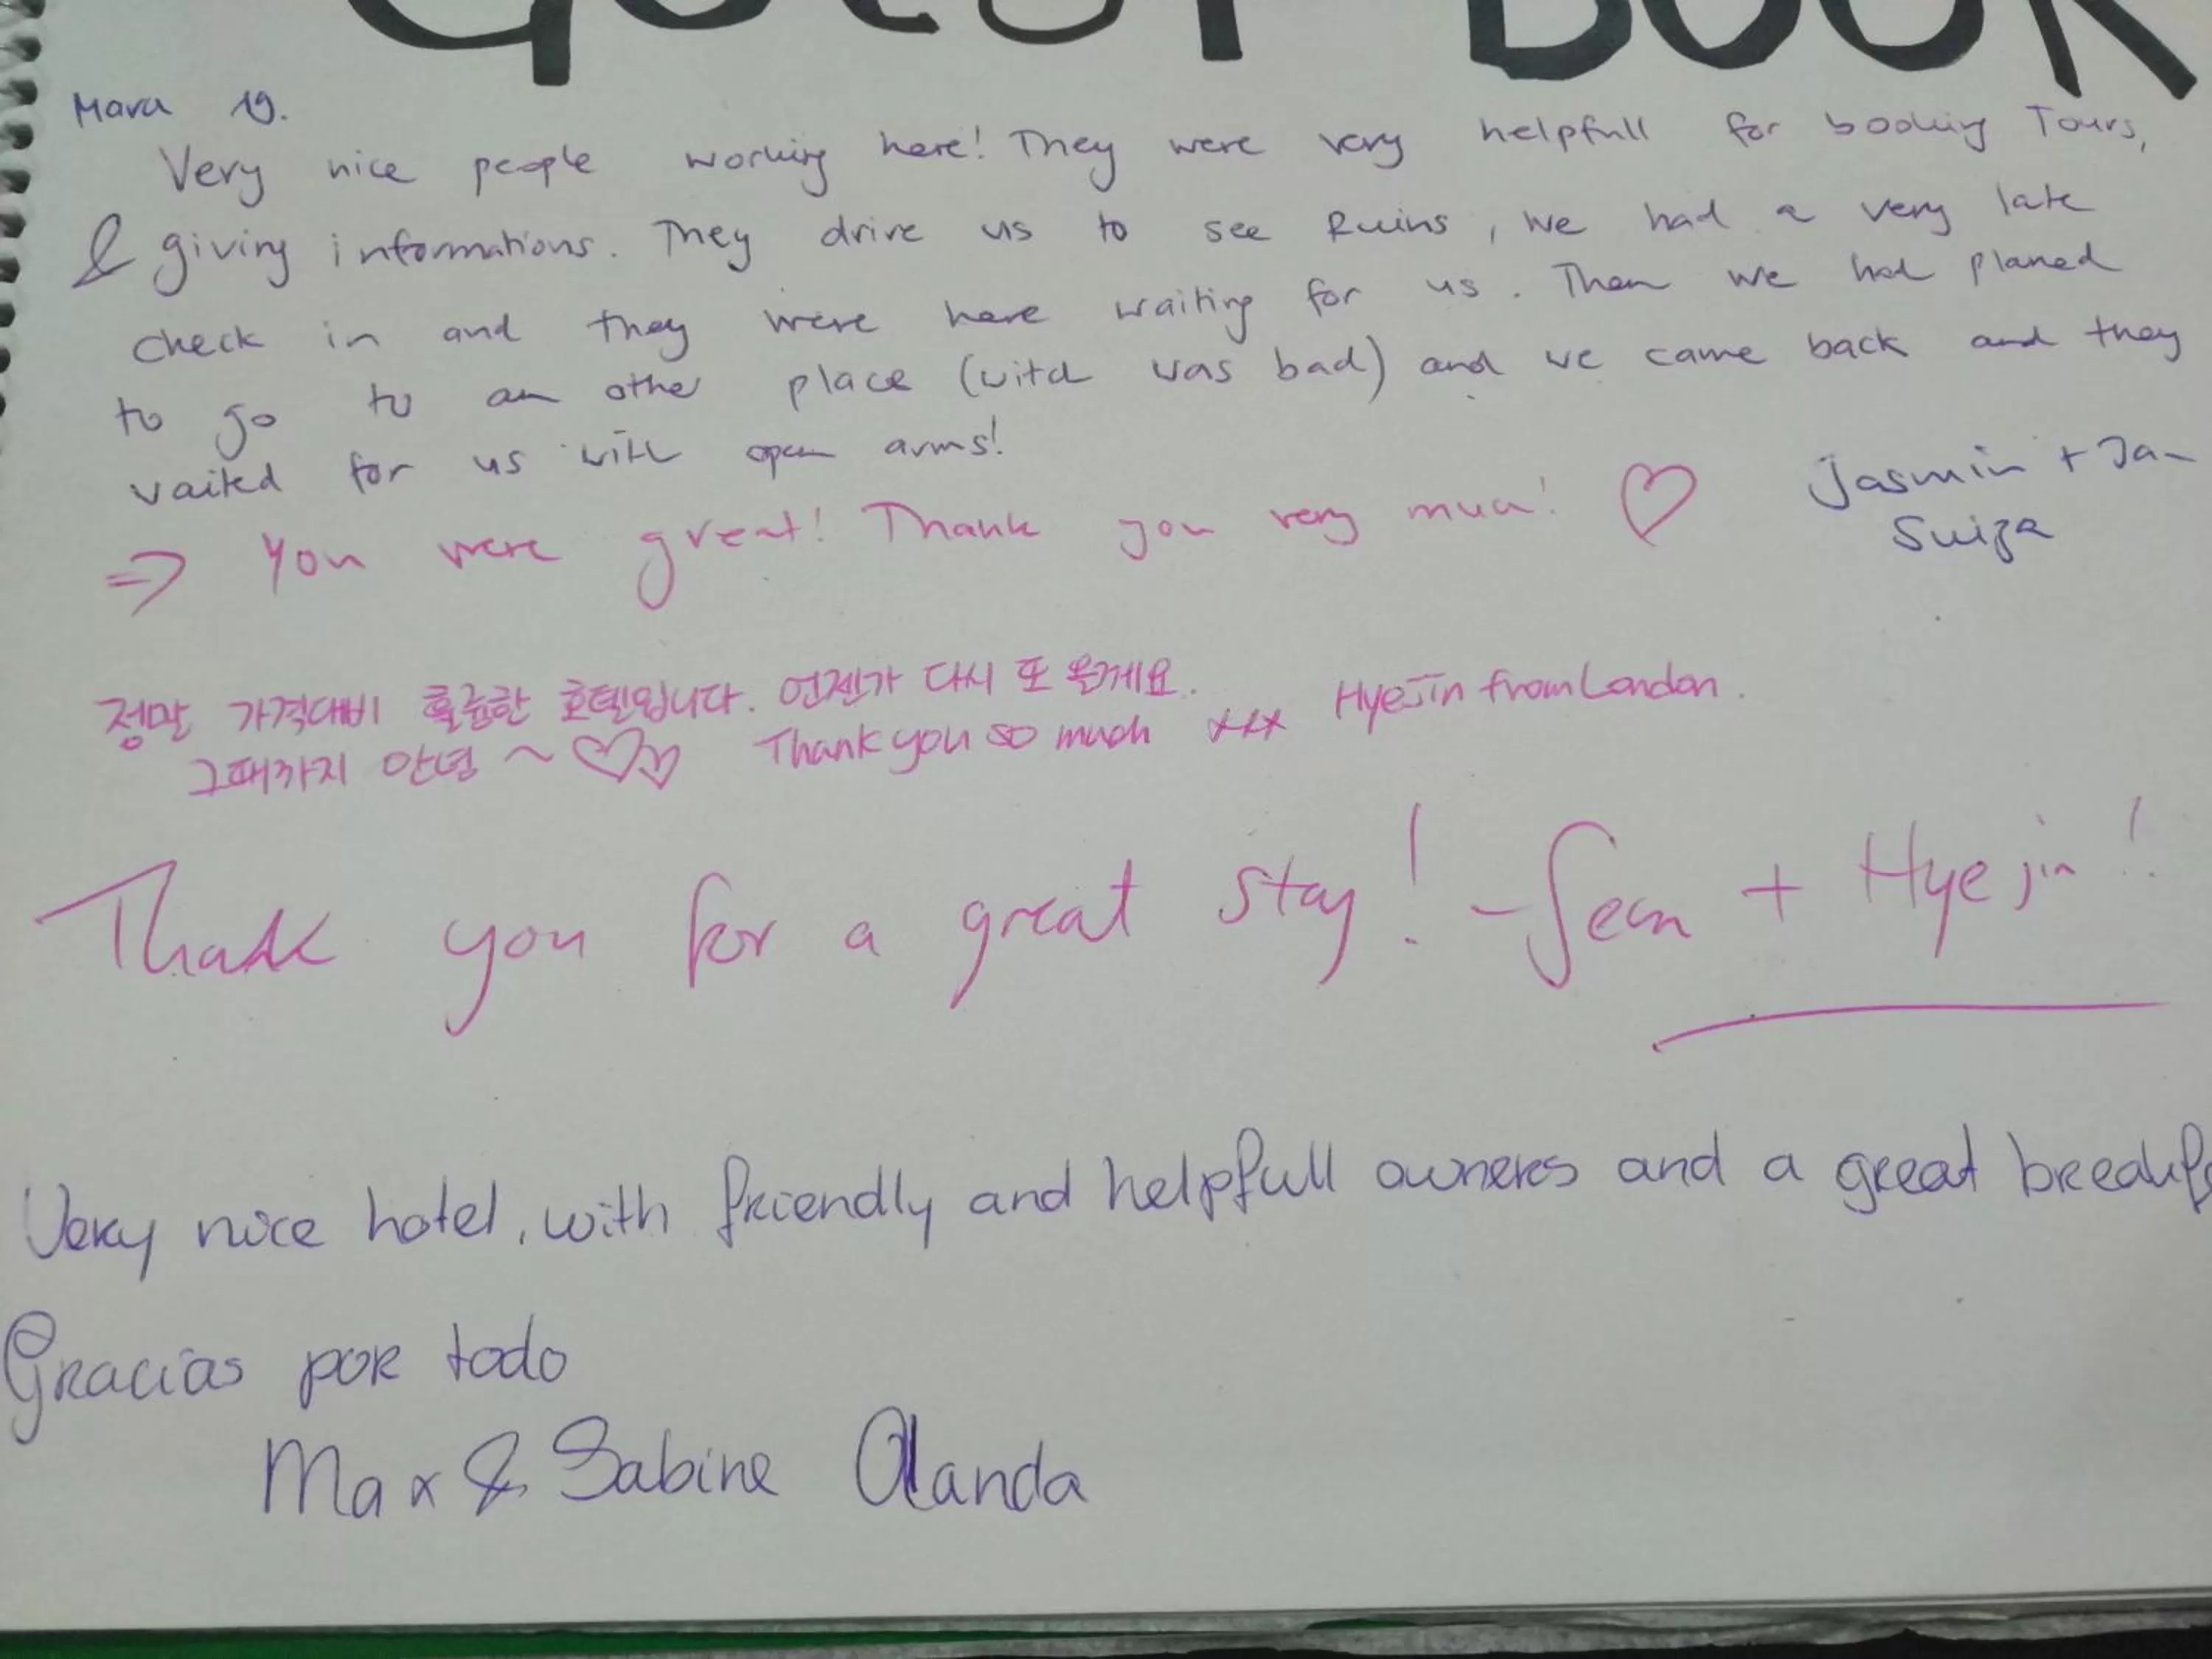 GUEST BOOK
Mara 19.
Very nice people working here! They were very helpfull for booking Tours,
& giving informations. They drive us to see Ruins, we had a very late
check in and they were here waiting for us. Then we had planed
to go to an other place (witch was bad) and we came back and they
waited for us with open arms!
⇒ You were great! Thank you very much! ♡ Jasmin + Jan
Suiza
정말 가격대비 훌륭한 호텔입니다. 언젠가 다시 또 올게요.
그때까지 안녕 ~ ♡♡ Thank you so much xxx HyeJin from London.
Thank you for a great stay! - Sean + Hyejin!
Very nice hotel, with friendly and helpfull owners and a great breakf
Gracias por todo
Max & Sabine Olanda